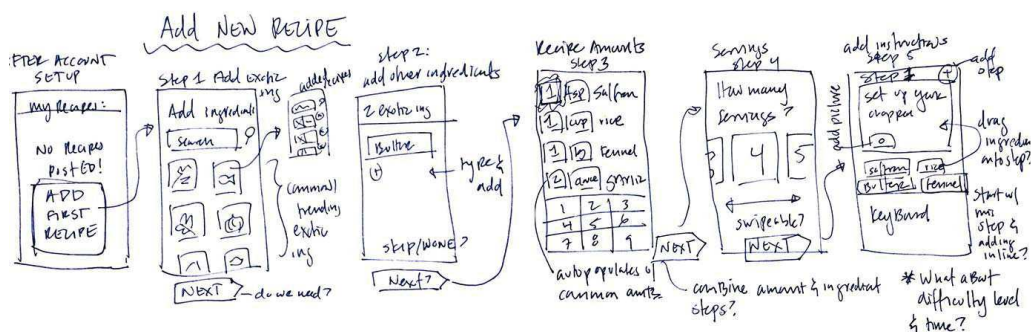 Add NEW RECIPE
FTER ACCOUNT
SETUP
my Recipes:
No Recipes
POSTED!
ADD
FIRST
RECIPE
Step 1 Add Exotic
ing
Add ingredients
Search
added recipes
common/
trending
exotic
ing
NEXT
do we need?
step 2:
add other ingredients
2 Exotic ing
Butter
+
type &
add
skip/NONE?
Next?
Recipe Amounts
Step 3
1 tsp Saffron
1 cup rice
1 lb Fennel
2 GARLIC
1 2 3
4 5 6
7 8 9
NEXT
autopopulates w/
common amts
combine amount & ingredient
steps?
Servings
Step 4
How many
servings?
4 5
swipeable?
NEXT
add picture
add instructions
Step 5
Step 1
+
add
step
set up your
chopper
saffron rice
Butter Fennel
KeyBoard
drag
ingredien
into step?
Start w/
this
step &
adding
inline?
* What about
difficulty level
& time?